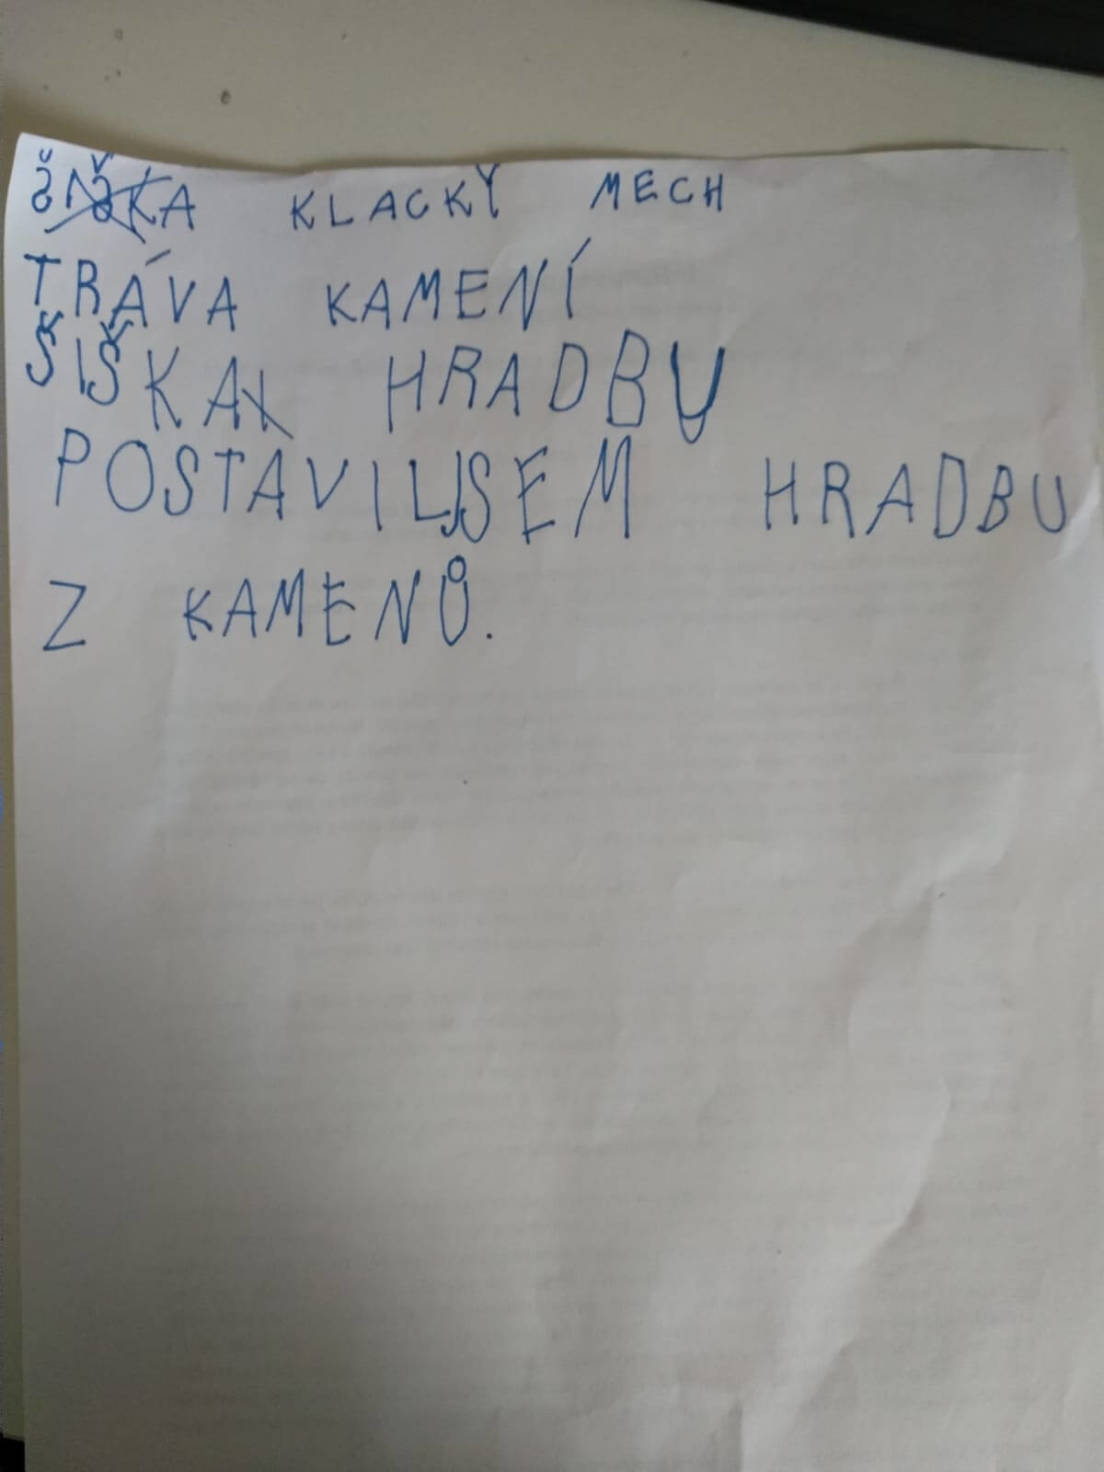 ŠIŠKA KLACKY MECH
TRÁVA KAMENÍ
ŠIŠKA HRADBU
POSTAVIL JSEM HRADBU
Z KAMENŮ.